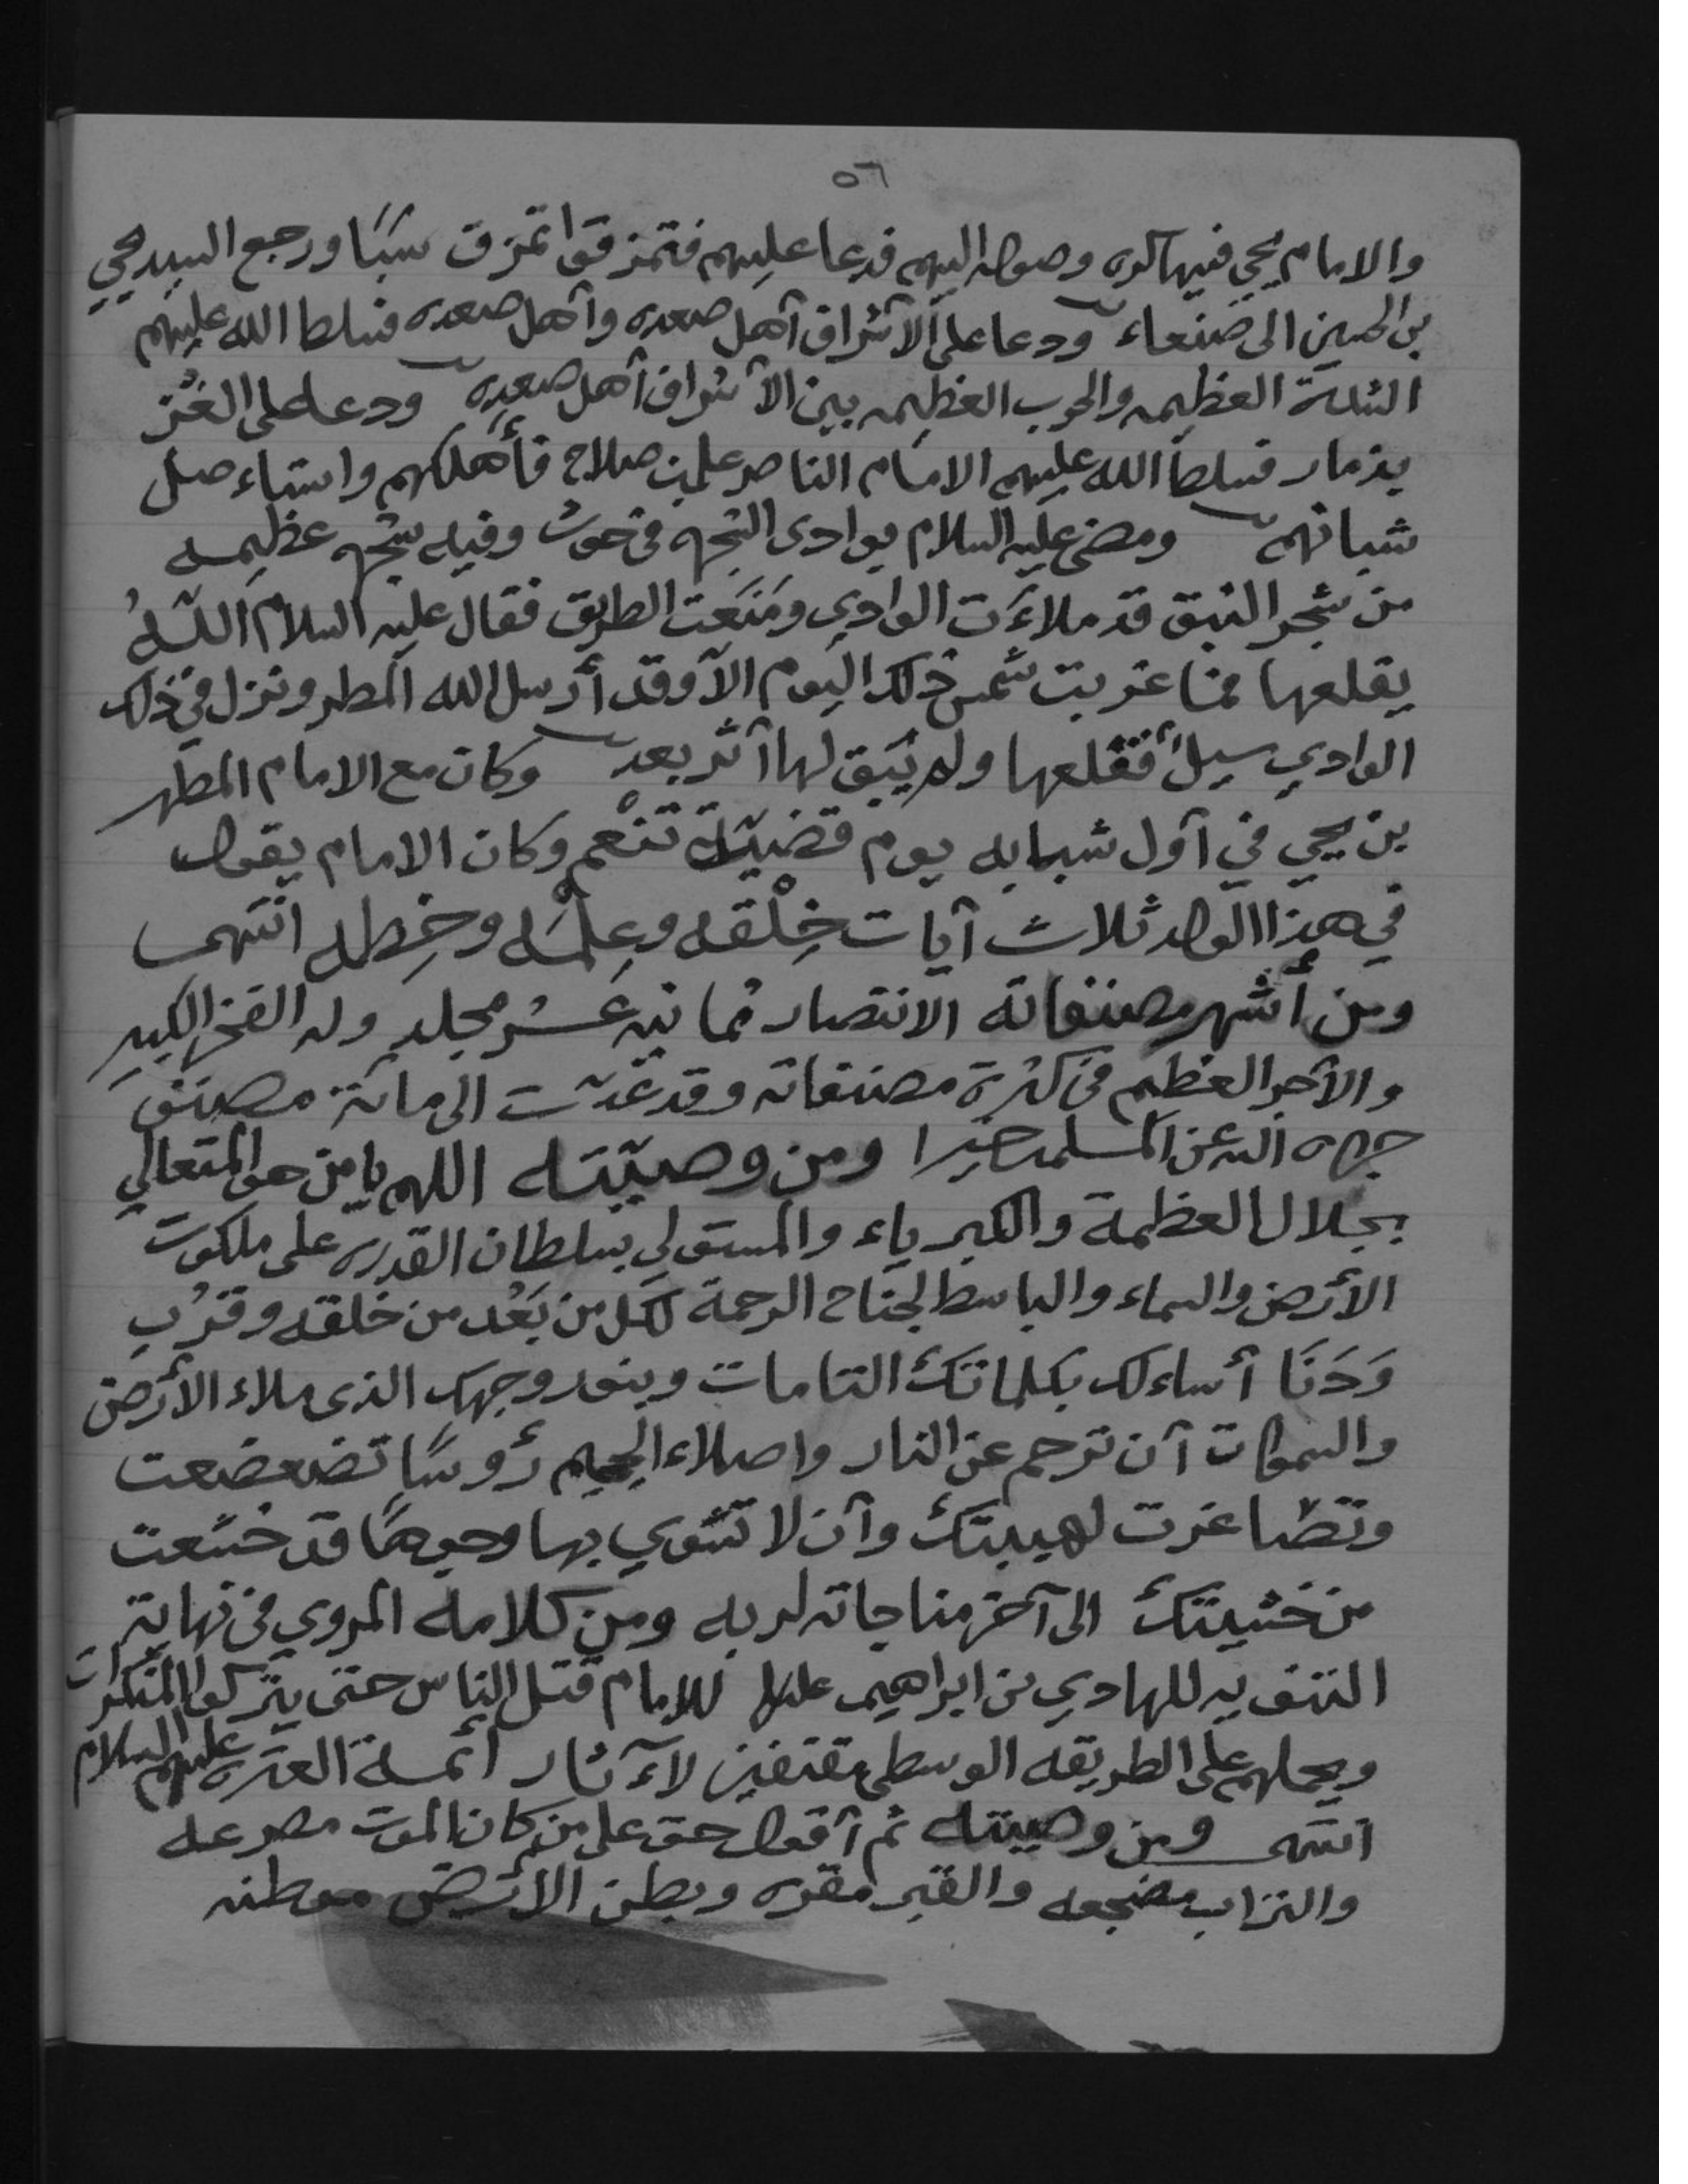 ٥٦
والامام يحي فيها كره وصوله اليهم فدعا عليهم فتمزقوا تمزق سبأ ورجع السيد يحيى
بن الحسين الى صنعاء ودعا على الأشراف أهل صعده وأهل صعده فسلط الله عليهم
الشدة العظيمه والحرب العظيمه بين الأشراف أهل صعده ودعا على الغُز
بذمار فسلط الله عليهم الامام الناصر علي بن صلاح فأهلكهم واستاءصل
شبانهم ومضى عليه السلام بوادى الشجه في حوث وفيه شجه عظيمه
من شجر النبق قد ملاءَت الوادي ومَنَعت الطريق فقال عليه السلام اللّه
يقلعها فما غربت شمس ذلك اليوم الاّ وقد أرسل الله المطر ونزل في ذلك
الوادي سيل فقلعها ولم يَبق لها أثر بعد وكان مع الامام المطهر
بن يحي في أول شبابه يوم قضيّة تنْعم وكان الامام يقول
في هذا الولد ثلاث آيات خِلْقه وعِلْمه وخِطه انتهى
ومن أشهر مصنفاته الانتصار ثمانيه عَشر مجلد وله الفخر الكبير
والأجر العظيم في كثرة مصنفاته وقد عُدّت الى مائة مصنف
جزاه الله عن المسلمين خيرا ومن وصيّته اللهم يا من هو المتعالي
بجلال العظمة والكبرياء والمستولي بسلطان القدره على ملكوت
الأرض والسماء والباسط لجناح الرحمة لكل من بَعُد من خلقه وقرُب
وَدَنَا أساءلك بكلماتك التامات وبنور وجهك الذى ملاء الأرض
والسموات أن ترحم عن النار واصلاء الجحيم رؤوسًا تضعضعت
وتصاغرت لهيبتك وأن لا تشوي بها وجوهًا قد خشعت
من خشيتك الى آخر مناجاته لربه ومن كلامه المروي في نهاية
التنويه للهادي بن ابراهيم للامام قتل الناس حتى يتركوا المنكرات
ويحملهم على الطريقه الوسطى مقتفين لآثار أئمة العتره عليهم السلام
انتهى ومن وصيته ثم أقول حق على من كان الموت مصرعه
والتراب مضجعه والقبر مقره وبطن الأرض موطنه